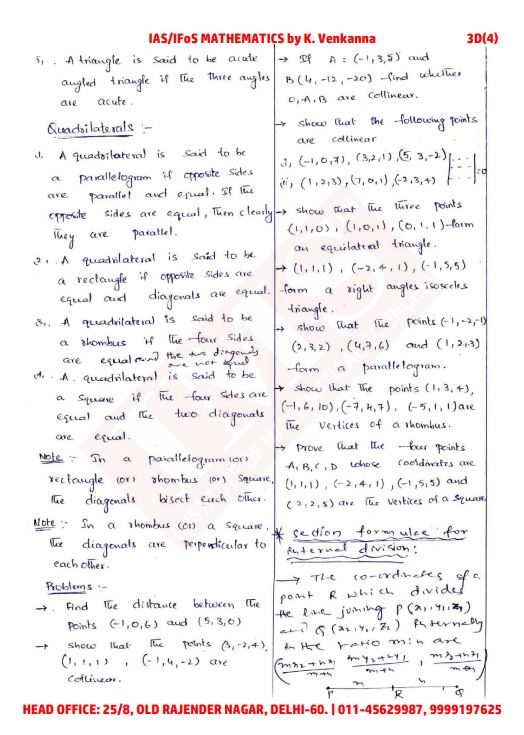 IAS/IFoS MATHEMATICS by K. Venkanna 3D(4)
5, . A triangle is said to be acute
angled triangle if the three angles
are acute.
Quadrilaterals :-
1. A quadrilateral is said to be
a parallelogram if opposite sides
are parallel and equal. If the
opposite sides are equal, Then clearly
They are parallel.
2. . A quadrilateral is said to be
a rectangle if opposite sides are
equal and diagonals are equal.
3. . A quadrilateral is said to be
a rhombus if the four sides
are equal and the two diagonals
are not equal
4. . A quadrilateral is said to be
a square if the four sides are
equal and the two diagonals
are equal.
Note :- In a parallelogram (or)
rectangle (or) rhombus (or) square,
the diagonals bisect each other.
Note :- In a rhombus (or) a square,
the diagonals are perpendicular to
each other.
Problems :-
→ . Find the distance between the
points (-1,0,6) and (5,3,0)
→ show that the points (3,-2,4),
(1,1,1) , (-1,4,-2) are
Collinear.
→ If A = (-1,3,5) and
B(4,-12,-20) find whether
O,A,B are Collinear.
→ show that the following points
are collinear
i, (-1,0,7), (3,2,1), (5,3,-2) =0
ii, (1,2,3), (7,0,1), (-2,3,4)
→ show that the three points
(1,1,0) , (1,0,1) , (0,1,1) form
an equilateral triangle.
→ (1,1,1) , (-2,4,1) , (-1,5,5)
form a right angles isosceles
triangle.
→ show that the points (-1,-2,-1)
(2,3,2) , (4,7,6) and (1,2,3)
form a parallelogram.
→ show that the points (1,3,4),
(-1,6,10), (-7,4,7), (-5,1,1) are
the vertices of a rhombus.
→ prove that the four points
A,B,C,D whose coordinates are
(1,1,1) , (-2,4,1) , (-1,5,5) and
(2,2,5) are the vertices of a square
* section formulae for
internal division:
→ The co-ordinates of a
point R which divides
the line joining P(x₁,y₁,z₁)
and Q(x₂,y₂,z₂) internally
in the ratio m:n are
(mx₂+nx₁/m+n , my₂+ny₁/m+n , mz₂+nz₁/m+n)
m n
P R Q
HEAD OFFICE: 25/8, OLD RAJENDER NAGAR, DELHI-60. | 011-45629987, 9999197625